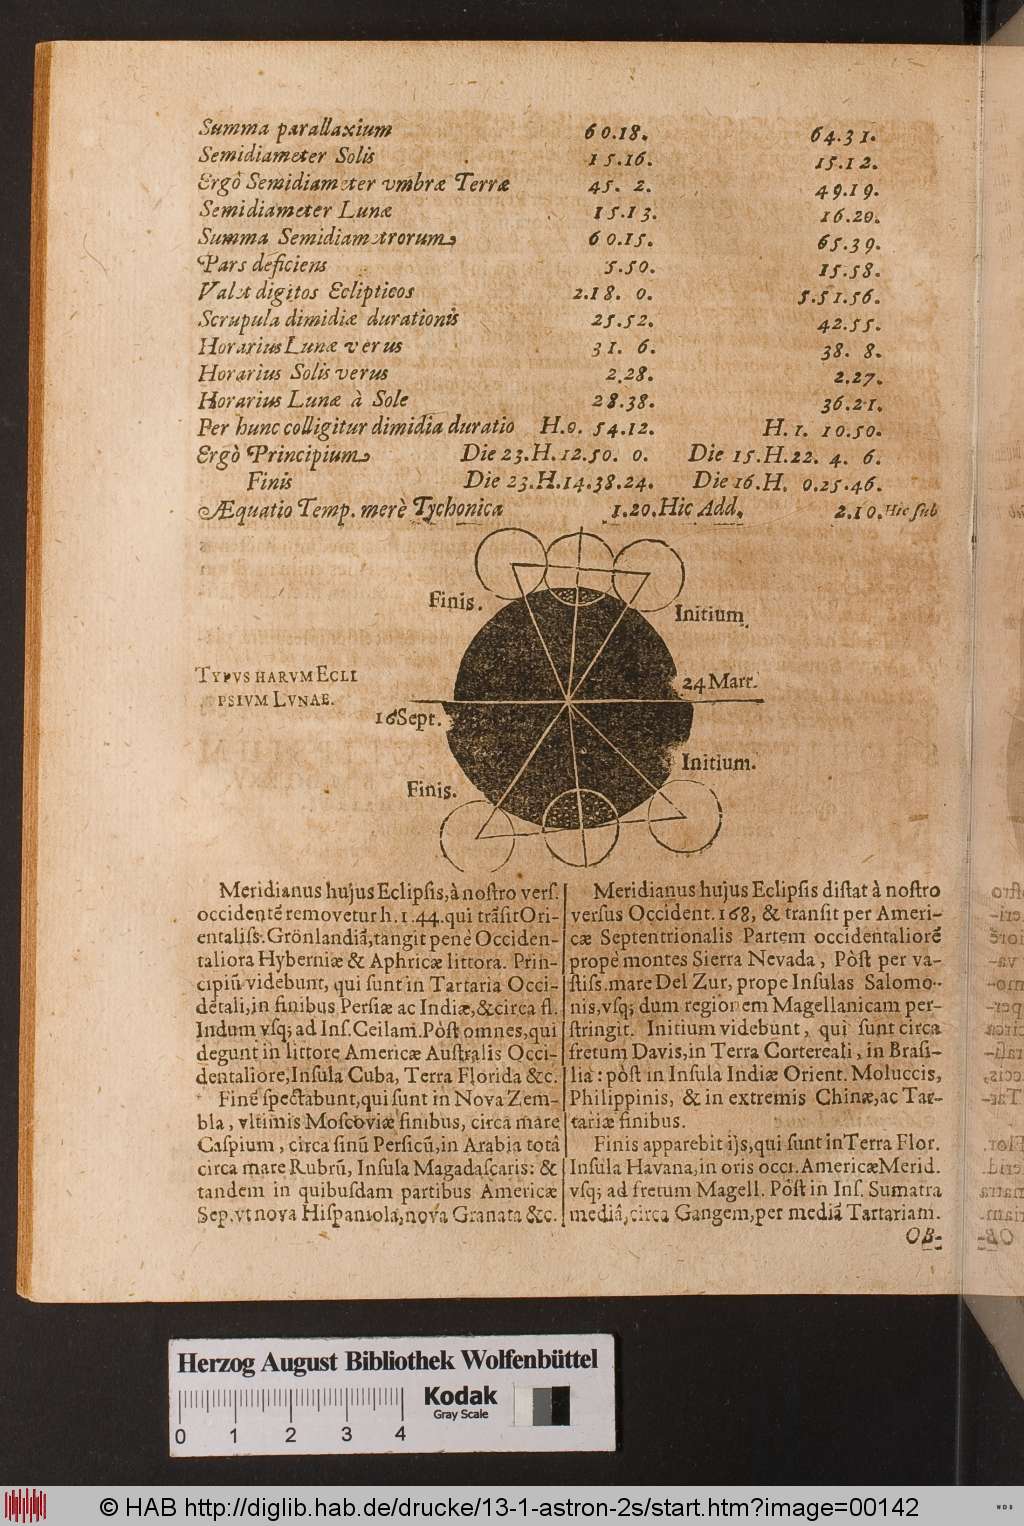 Summa parallaxium 60.18. 64.31.
Semidiameter Solis 15.16. 15.12.
Ergò Semidiameter vmbræ Terræ 45. 2. 49.19.
Semidiameter Lunæ 15.13. 16.20.
Summa Semidiametrorum 60.15. 65.39.
Pars deficiens 5.50. 15.58.
Valet digitos Eclipticos 2.18. 0. 5.51.56.
Scrupula dimidiæ durationis 25.52. 42.55.
Horarius Lunæ verus 31. 6. 38. 8.
Horarius Solis verus 2.28. 2.27.
Horarius Lunæ à Sole 28.38. 36.21.
Per hunc colligitur dimidia duratio H.0. 54.12. H. 1. 10.50.
Ergò Principium Die 23.H.12.50. 0. Die 15.H.22. 4. 6.
Finis Die 23.H.14.38.24. Die 16.H. 0.25.46.
Æquatio Temp. merè Tychonica 1.20.Hic Add. 2.10.Hic ſub
Finis.
Initium.
TYPVS HARVM ECLI
PSIVM LVNAE.
24 Mart.
16 Sept.
Initium.
Finis.
Meridianus hujus Eclipſis, à noſtro verſ.
occidentē removetur h. 1.44. qui trāſit Ori-
entaliſſ. Grönlandiā, tangit penè Occiden-
taliora Hyberniæ & Aphricæ littora. Prin-
cipiū videbunt, qui ſunt in Tartaria Occi-
dētali, in finibus Perſiæ ac Indiæ, & circa fl.
Indum vſq; ad Inſ. Ceilam. Pòſt omnes, qui
degunt in littore Americæ Auſtralis Occi-
dentaliore, Inſula Cuba, Terra Florida &c.
Finē ſpectabunt, qui ſunt in Nova Zem-
bla, vltimis Moſcoviæ finibus, circa mare
Caſpium, circa ſinū Perſicū, in Arabia totâ
circa mare Rubrū, Inſula Magadaſcaris: &
tandem in quibuſdam partibus Americæ
Sep. vt nova Hiſpaniola, nova Granata &c.
Meridianus hujus Eclipſis diſtat à noſtro
verſus Occident. 168, & tranſit per Ameri-
cæ Septentrionalis Partem occidentaliorē
prope montes Sierra Nevada, Pòſt per va-
ſtiſſ. mare Del Zur, prope Inſulas Salomo-
nis, vſq; dum regionem Magellanicam per-
ſtringit. Initium videbunt, qui ſunt circa
fretum Davis, in Terra Cortereali, in Braſi-
lia: pòſt in Inſula Indiæ Orient. Moluccis,
Philippinis, & in extremis Chinæ, ac Tar-
tariæ finibus.
Finis apparebit ijs, qui ſunt in Terra Flor.
Inſula Havana, in oris occr. Americæ Merid.
vſq; ad fretum Magell. Pòſt in Inſ. Sumatra
mediâ, circa Gangem, per mediā Tartariam.
OB-
Herzog August Bibliothek Wolfenbüttel
Kodak
Gray Scale
0 1 2 3 4
© HAB http://diglib.hab.de/drucke/13-1-astron-2s/start.htm?image=00142